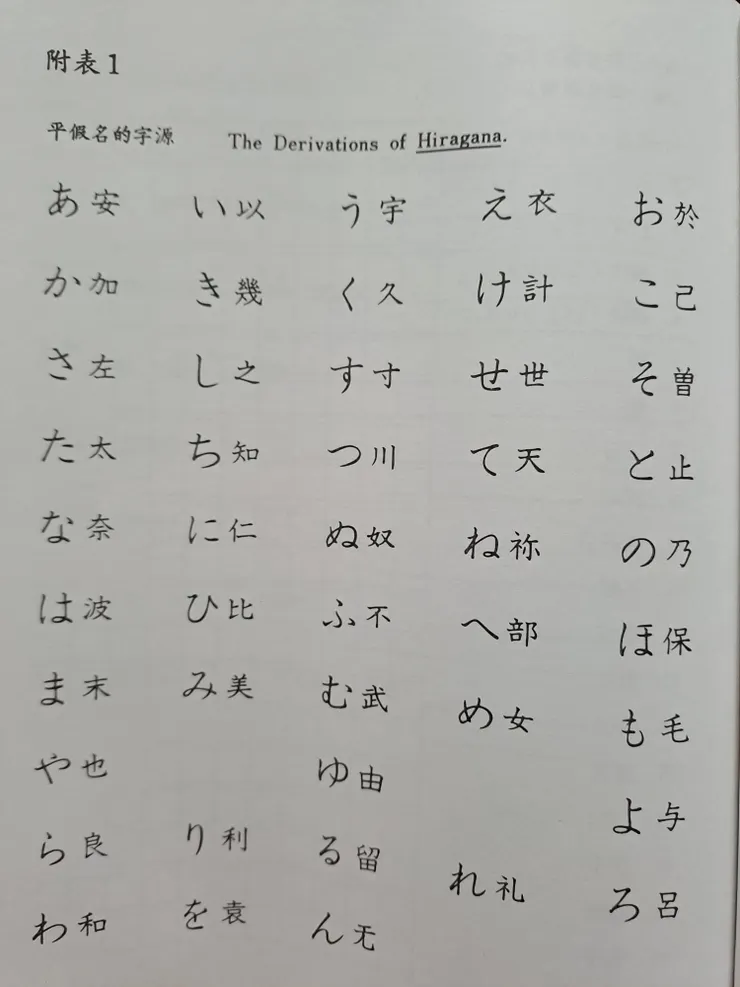 附表1
平假名的字源 The Derivations of Hiragana.
あ 安 い 以 う 宇 え 衣 お 於
か 加 き 幾 く 久 け 計 こ 己
さ 左 し 之 す 寸 せ 世 そ 曽
た 太 ち 知 つ 川 て 天 と 止
な 奈 に 仁 ぬ 奴 ね 祢 の 乃
は 波 ひ 比 ふ 不 へ 部 ほ 保
ま 末 み 美 む 武 め 女 も 毛
や 也 ゆ 由 よ 与
ら 良 り 利 る 留 れ 礼 ろ 呂
わ 和 を 袁 ん 无